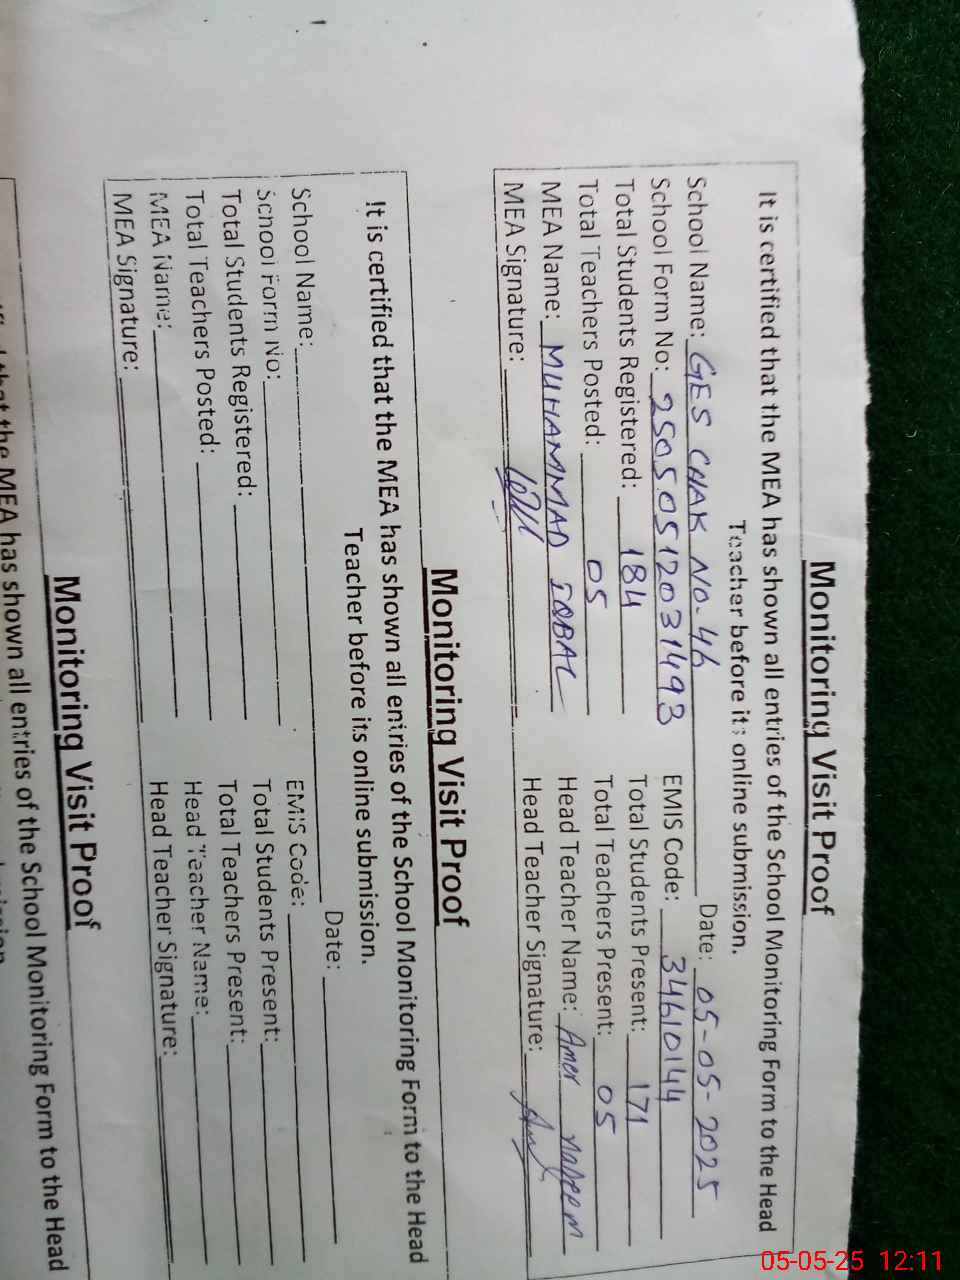 Monitoring Visit Proof
It is certified that the MEA has shown all entries of the School Monitoring Form to the Head
Teacher before its online submission.
School Name: GES CHAK NO. 46 Date: 05-05-2025
School Form No: 25050512031493 EMIS Code: 34610144
Total Students Registered: 184 Total Students Present: 171
Total Teachers Posted: 05 Total Teachers Present: 05
MEA Name: MUHAMMAD IQBAL Head Teacher Name: Amer nadeem
MEA Signature: Head Teacher Signature:
Monitoring Visit Proof
It is certified that the MEA has shown all entries of the School Monitoring Form to the Head
Teacher before its online submission.
School Name: Date:
School Form No: EMIS Code:
Total Students Registered: Total Students Present:
Total Teachers Posted: Total Teachers Present:
MEA Name: Head Teacher Name:
MEA Signature: Head Teacher Signature:
Monitoring Visit Proof
that the MEA has shown all entries of the School Monitoring Form to the Head
05-05-25 12:11